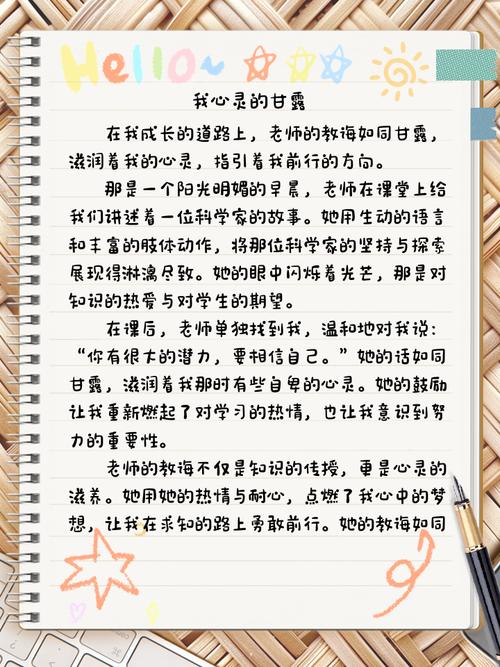 Hello~
我心灵的甘露
在我成长的道路上，老师的教诲如同甘露，
滋润着我的心灵，指引着我前行的方向。
那是一个阳光明媚的早晨，老师在课堂上给
我们讲述着一位科学家的故事。她用生动的语言
和丰富的肢体动作，将那位科学家的坚持与探索
展现得淋漓尽致。她的眼中闪烁着光芒，那是对
知识的热爱与对学生的期望。
在课后，老师单独找到我，温和地对我说：
“你有很大的潜力，要相信自己。”她的话如同
甘露，滋润着我那时有些自卑的心灵。她的鼓励
让我重新燃起了对学习的热情，也让我意识到努
力的重要性。
老师的教诲不仅是知识的传授，更是心灵的
滋养。她用她的热情与耐心，点燃了我心中的梦
想，让我在求知的路上勇敢前行。她的教诲如同